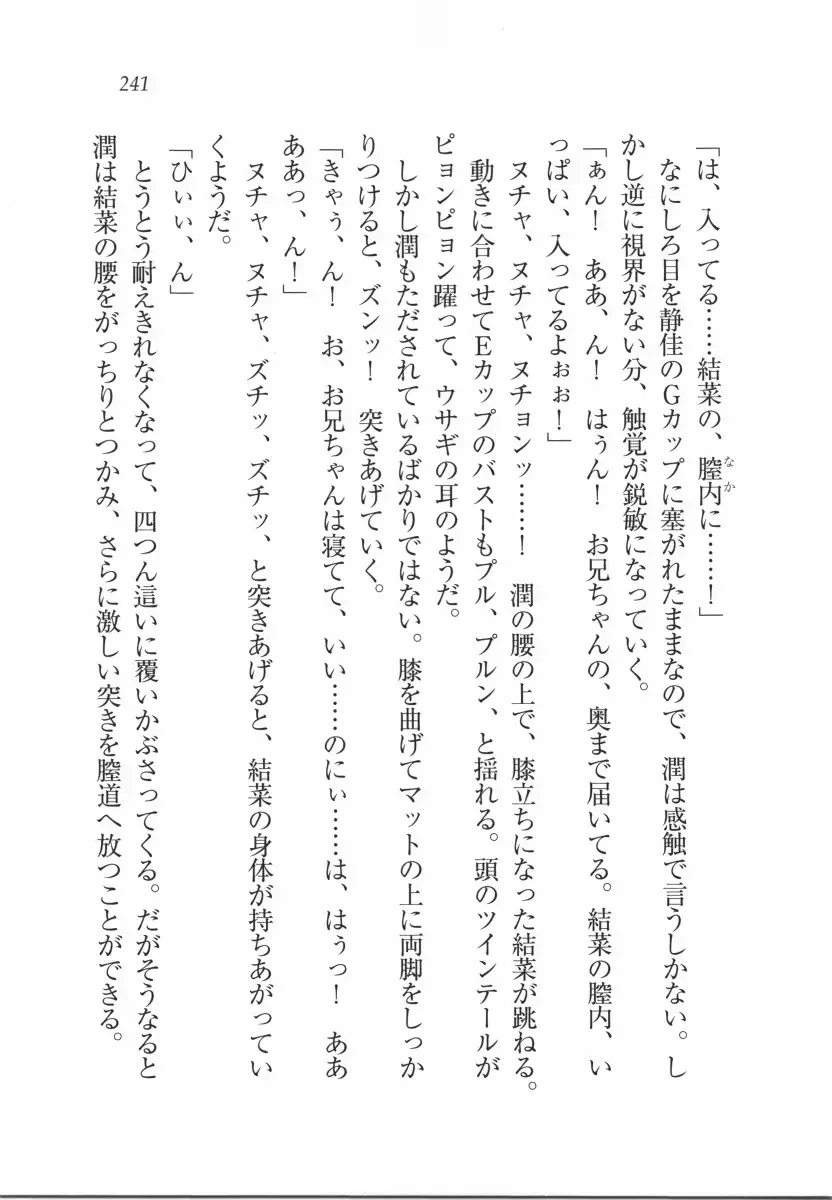 241
「は、入ってる……結菜の、膣内に……！」
なにしろ目を静佳のGカップに塞がれたままなので、潤は感触で言うしかない。し
かし逆に視界がない分、触覚が鋭敏になっていく。
「ぁん！　ああ、ん！　はぅん！　お兄ちゃんの、奥まで届いてる。結菜の膣内、い
っぱい、入ってるよぉぉ！」
ヌチャ、ヌチャ、ヌチョンッ……！　潤の腰の上で、膝立ちになった結菜が跳ねる。
動きに合わせてEカップのバストもプル、プルン、と揺れる。頭のツインテールが
ピョンピョン躍って、ウサギの耳のようだ。
しかし潤もただされているばかりではない。膝を曲げてマットの上に両脚をしっか
りつけると、ズンッ！　突きあげていく。
「きゃぅ、ん！　お、お兄ちゃんは寝てて、いい……のにぃ……は、はぅっ！　ああ
ああっ、ん！」
ヌチャ、ヌチャ、ズチッ、ズチッ、と突きあげると、結菜の身体が持ちあがってい
くようだ。
「ひぃぃ、ん」
とうとう耐えきれなくなって、四つん這いに覆いかぶさってくる。だがそうなると
潤は結菜の腰をがっちりとつかみ、さらに激しい突きを膣道へ放つことができる。
なか